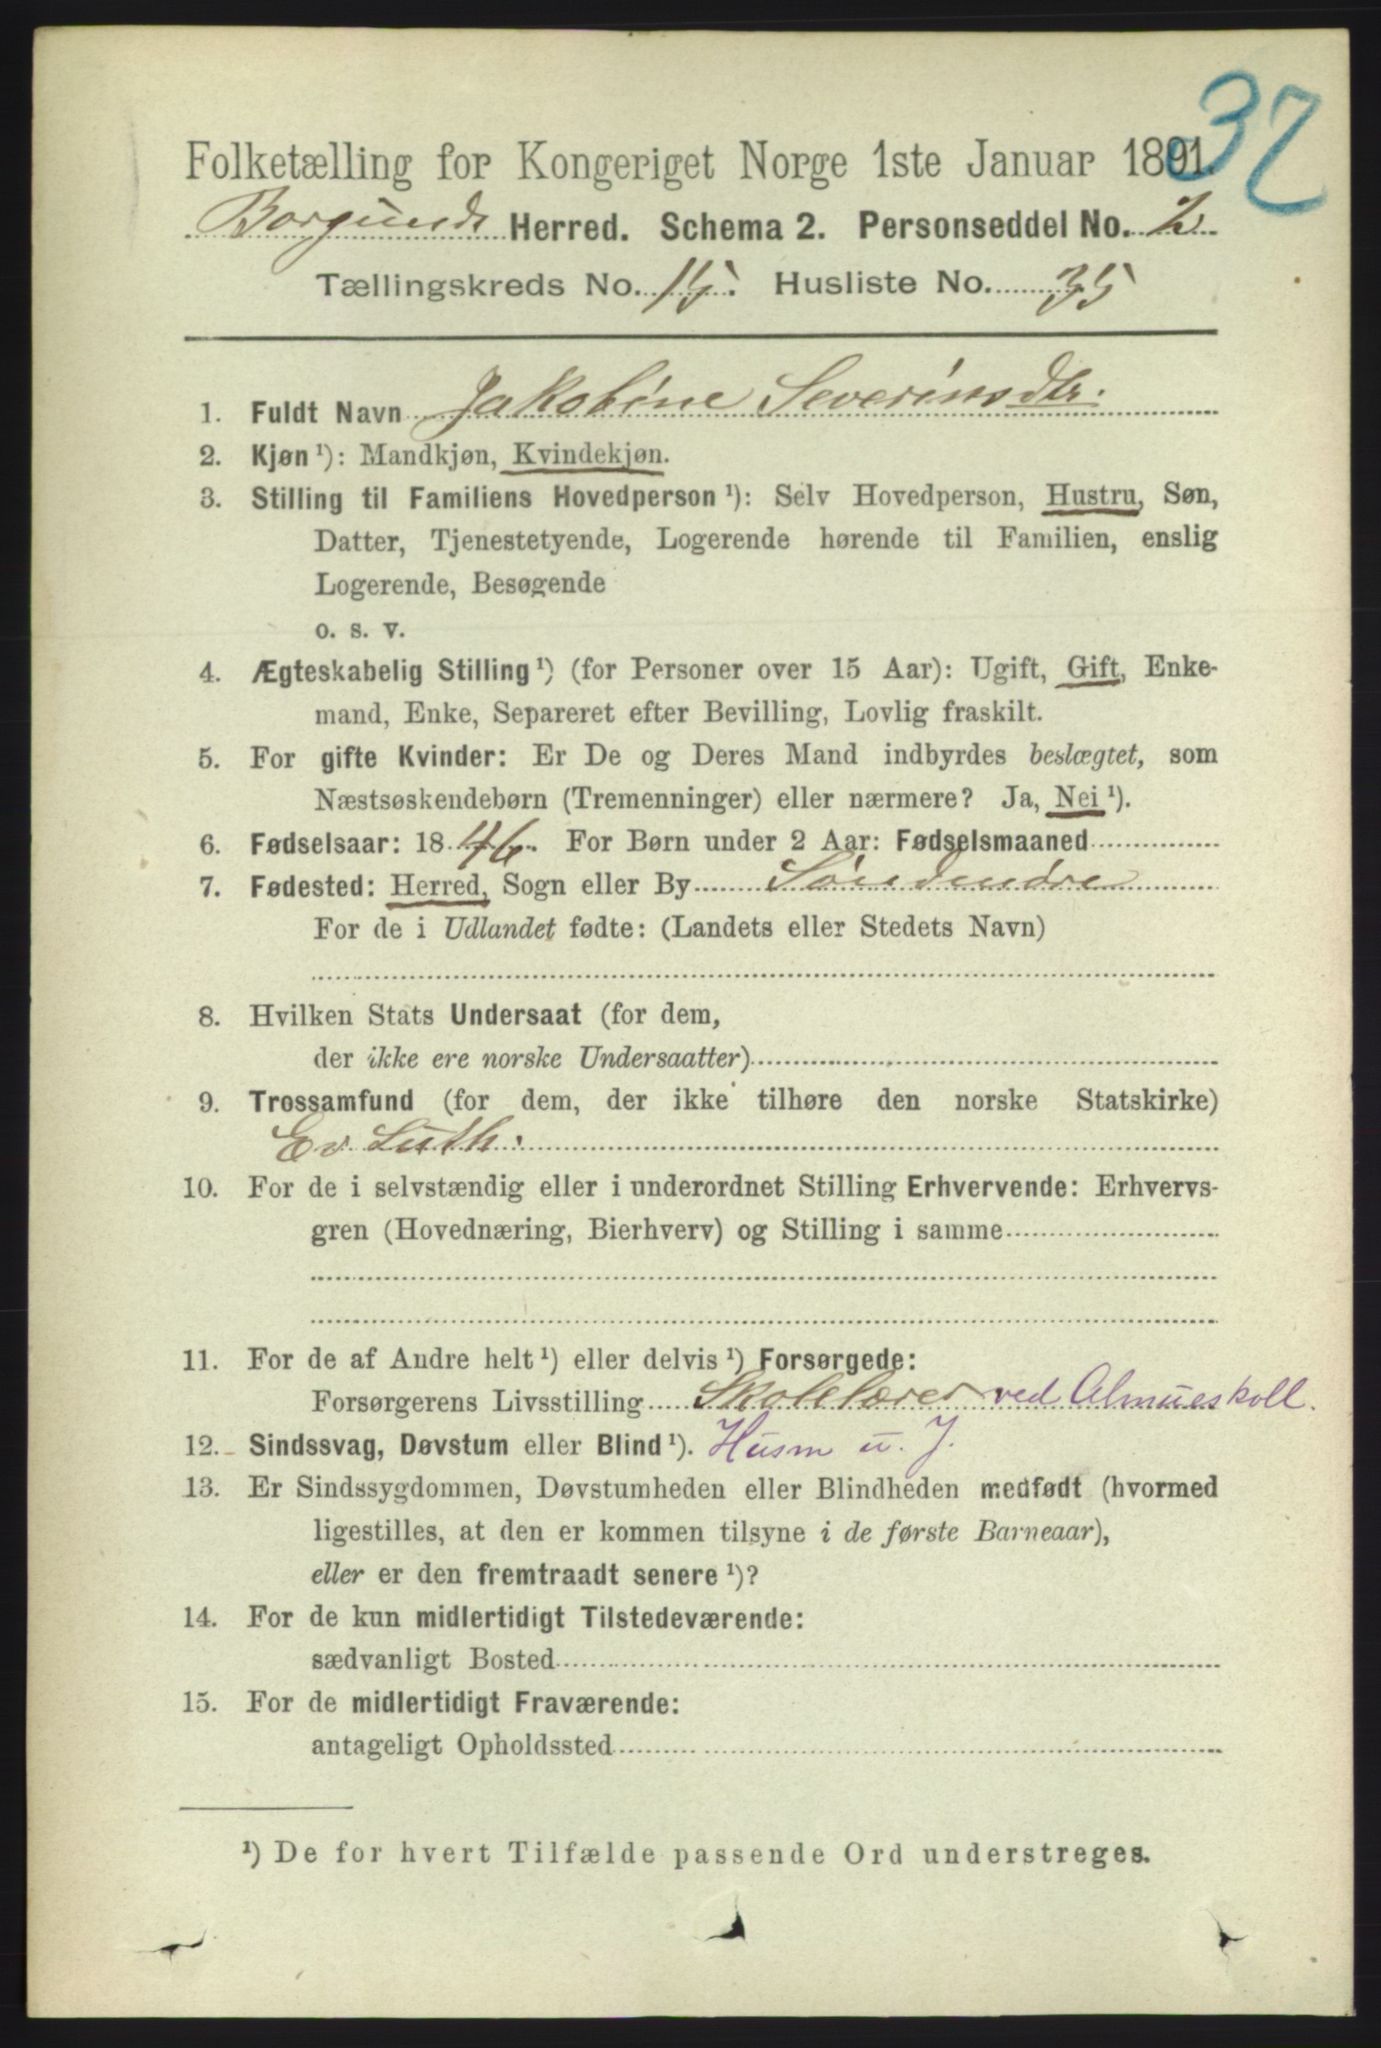 32
Folketælling for Kongeriget Norge 1ste Januar 1891.
Borgunds Herred. Schema 2. Personseddel No. 2
Tællingskreds No. 15. Husliste No. 35
1. Fuldt Navn Jakobine Severinsdtr.
2. Kjøn ¹): Mandkjøn, Kvindekjøn.
3. Stilling til Familiens Hovedperson ¹): Selv Hovedperson, Hustru, Søn,
Datter, Tjenestetyende, Logerende hørende til Familien, enslig
Logerende, Besøgende
o. s. v.
4. Ægteskabelig Stilling ¹) (for Personer over 15 Aar): Ugift, Gift, Enke-
mand, Enke, Separeret efter Bevilling, Lovlig fraskilt.
5. For gifte Kvinder: Er De og Deres Mand indbyrdes beslægtet, som
Næstsøskendebørn (Tremenninger) eller nærmere? Ja, Nei ¹).
6. Fødselsaar: 1846. For Børn under 2 Aar: Fødselsmaaned
7. Fødested: Herred, Sogn eller By Søndmøre
For de i Udlandet fødte: (Landets eller Stedets Navn)
8. Hvilken Stats Undersaat (for dem,
der ikke ere norske Undersaatter)
9. Trossamfund (for dem, der ikke tilhøre den norske Statskirke)
Ev. Luth.
10. For de i selvstændig eller i underordnet Stilling Erhvervende: Erhvervs-
gren (Hovednæring, Bierhverv) og Stilling i samme
11. For de af Andre helt ¹) eller delvis ¹) Forsørgede:
Forsørgerens Livsstilling Skolelærer ved Almueskoll.
12. Sindssvag, Døvstum eller Blind ¹). Husm u. J.
13. Er Sindssygdommen, Døvstumheden eller Blindheden medfødt (hvormed
ligestilles, at den er kommen tilsyne i de første Barneaar),
eller er den fremtraadt senere ¹)?
14. For de kun midlertidigt Tilstedeværende:
sædvanligt Bosted
15. For de midlertidigt Fraværende:
antageligt Opholdssted
¹) De for hvert Tilfælde passende Ord understreges.